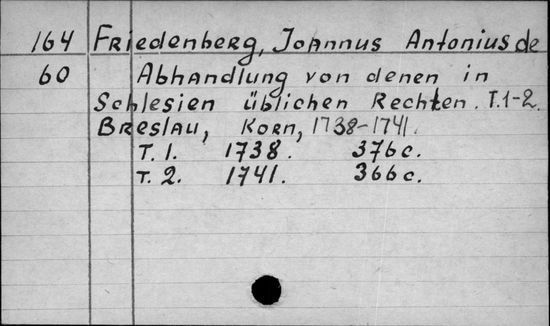 164 Friedenberg, Joannus Antonius de
60 Abhandlung von denen in
Schlesien üblichen Rechten. T.1-2.
Breslau, Korn, 1738-1741.
T. 1. 1738. 376 c.
T. 2. 1741. 366 c.